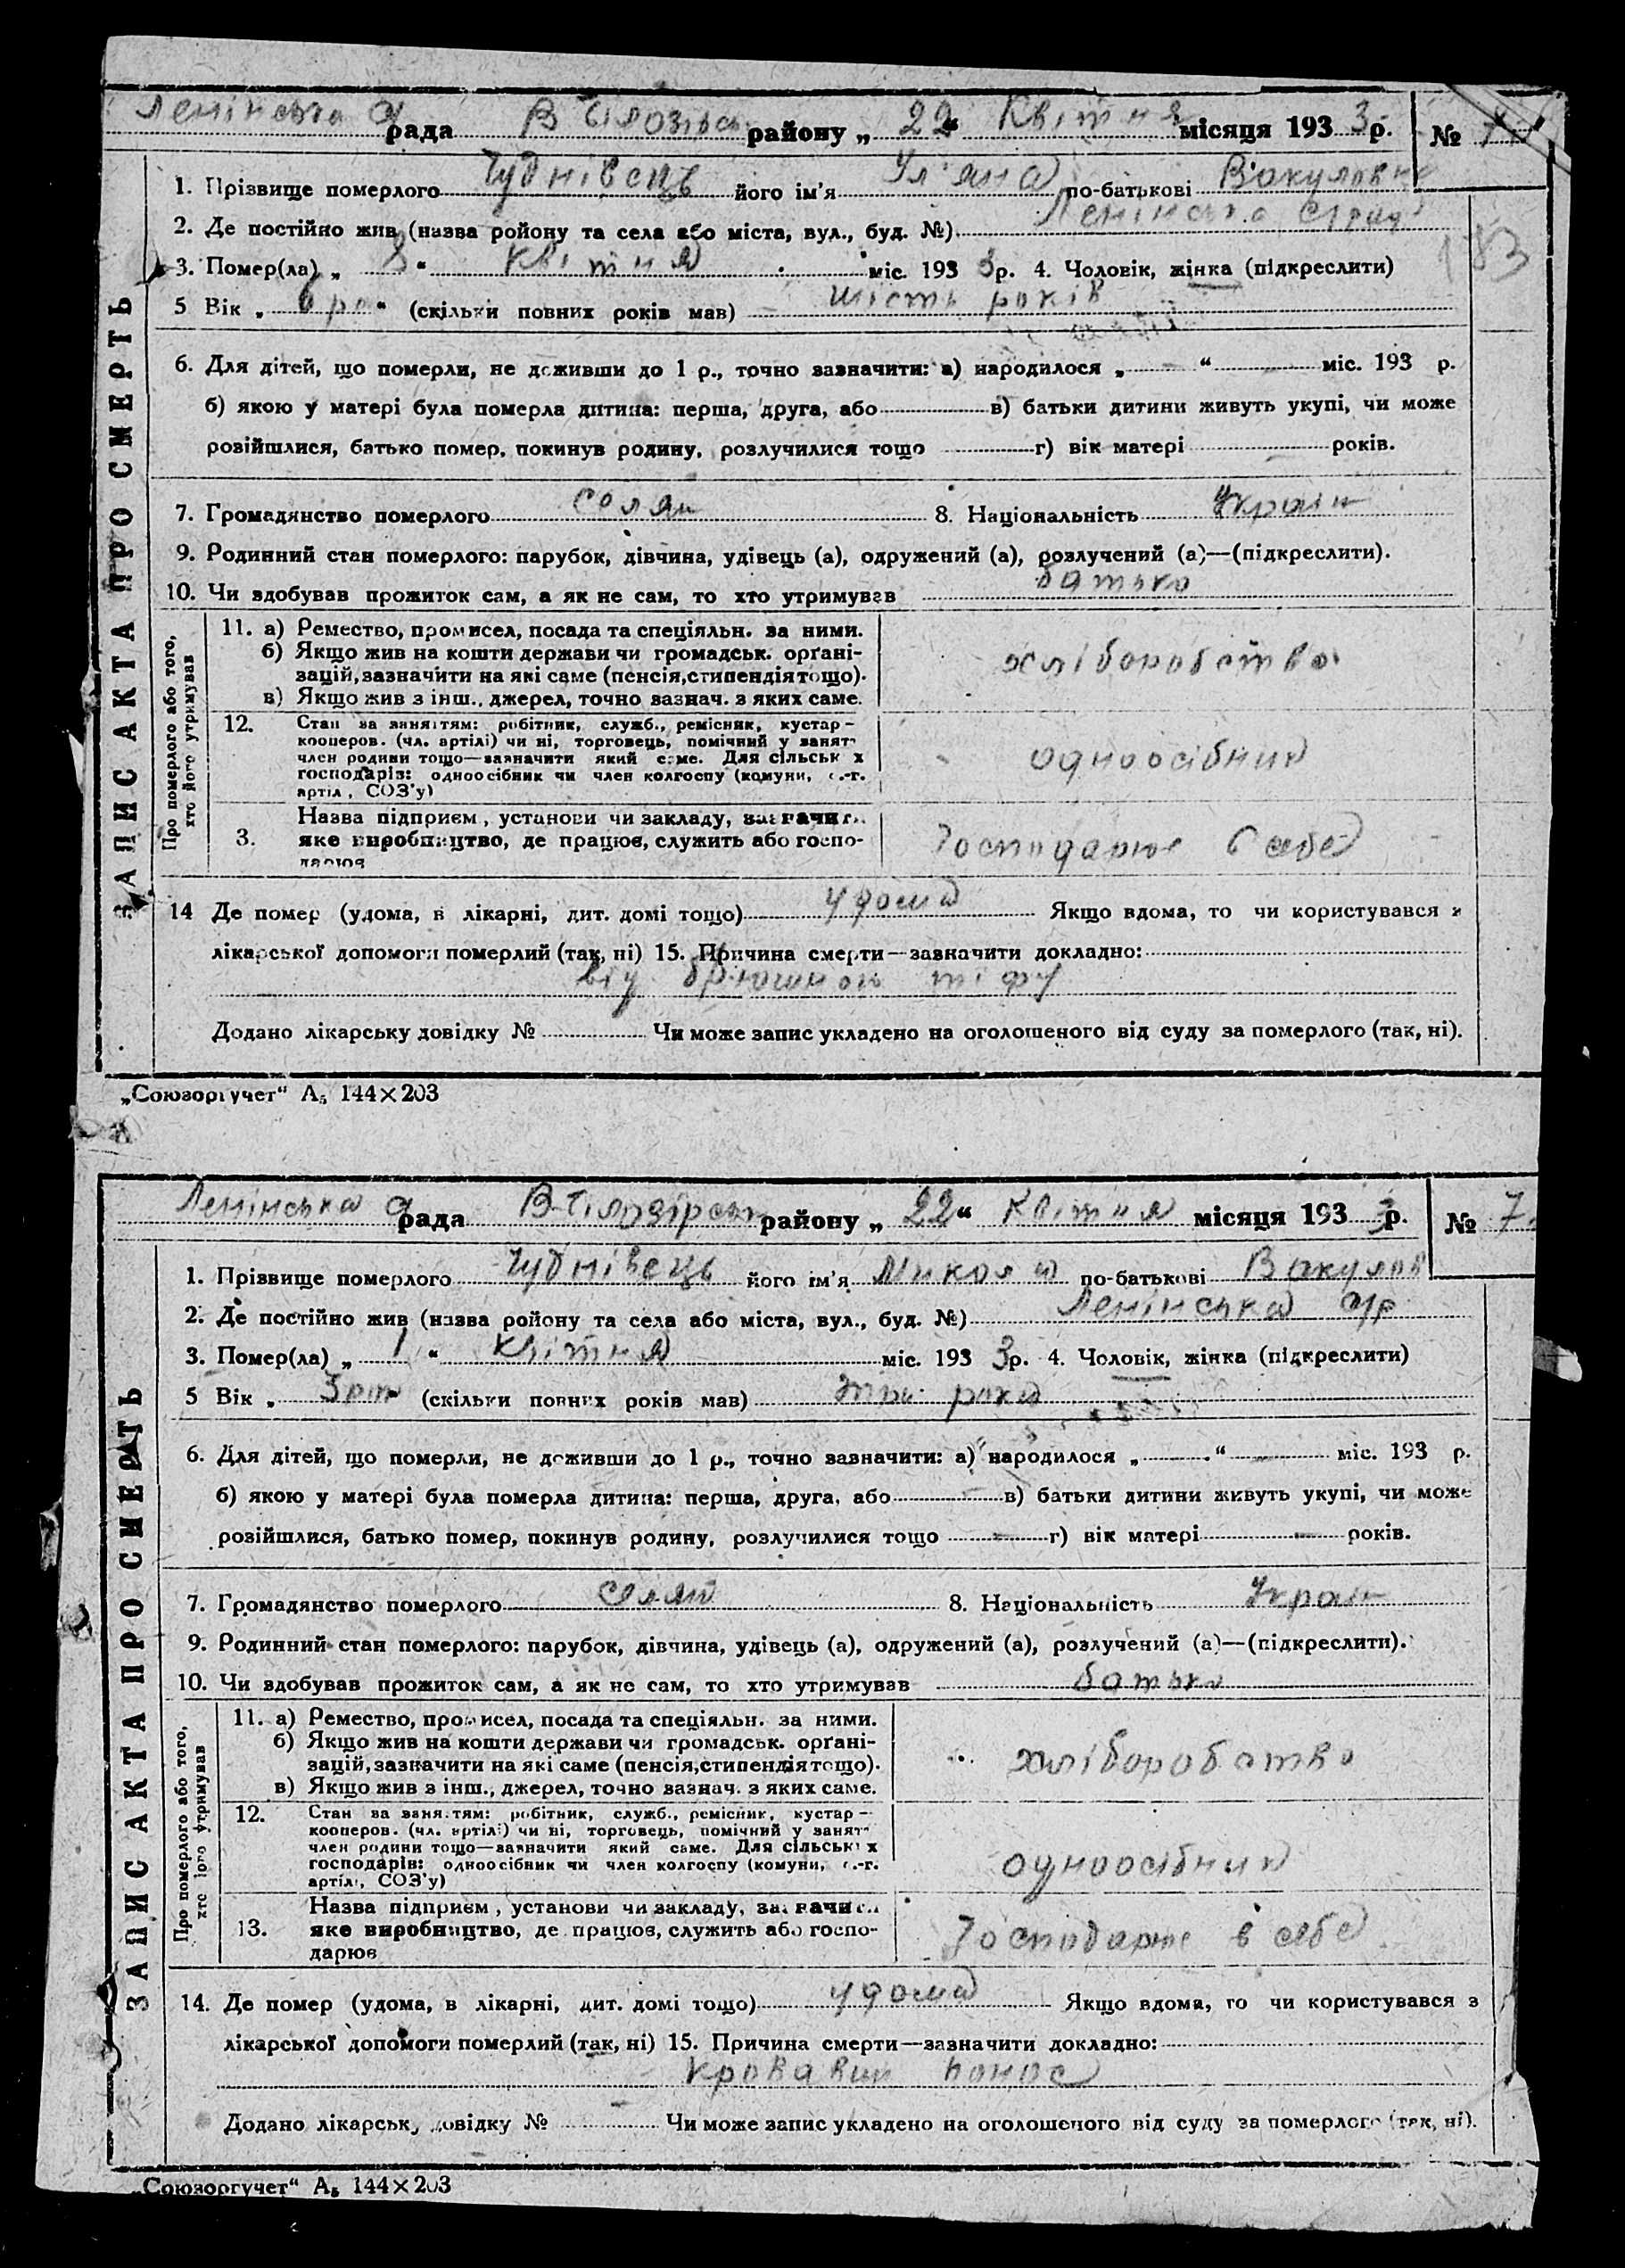 Ленінська рада В Білозірсь району „ 22 “ Квітня місяця 193 3 р. №
1. Прізвище померлого Чуднівець його ім'я Ул'яна по-батькові Вакуловна
2. Де постійно жив (назва ройону та села або міста, вул., буд. №) Ленінська
183
3. Помер(ла) „ 8 “ Квітня міс. 193 3 р. 4. Чоловік, жінка (підкреслити)
5 Вік „ 6 ро “ (скільки повних років мав) шість років
6. Для дітей, що померли, не доживши до 1 р., точно зазначити: а) народилося „ “ міс. 193 р.
б) якою у матері була померла дитина: перша, друга, або в) батьки дитини живуть укупі, чи може
розійшлися, батько помер, покинув родину, розлучилися тощо г) вік матері років.
7. Громадянство померлого Селян 8. Національність Україн
9. Родинний стан померлого: парубок, дівчина, удівець (а), одружений (а), розлучений (а)—(підкреслити).
10. Чи здобував прожиток сам, а як не сам, то хто утримував батько
ЗАПИС АКТА ПРО СМЕРТЬ
Про померлого або того, хто його утримував
11. а) Ремество, промисел, посада та спеціяльн. за ними.
б) Якщо жив на кошти держави чи громадськ. орґані-
зацій, зазначити на які саме (пенсія, стипендія тощо).
в) Якщо жив з інш., джерел, точно вазнач. з яких саме.
хліборобство
12. Стан за заняттям: робітник, служб., ремісник, кустар –
кооперов. (чл. артілі) чи ні, торговець, помічний у занят
член родини тощо—зазначити який саме. Для сільськ х
господарів: одноосібник чи член колгоспу (комуни, с.-г.
артіл, СОЗ'у)
одноосібник
3. Назва підприєм, установи чи закладу, зазначити
яке виробництво, де працює, служить або госпо-
дарює
Господарює в себе
14 Де помер (удома, в лікарні, дит. домі тощо) удома Якщо вдома, то чи користувався з
лікарської допомоги померлий (так, ні) 15. Причина смерти—зазначити докладно:
від брюшного тіфу
Додано лікарську довідку № Чи може запис укладено на оголошеного від суду за померлого (так, ні).
„Союзоргучет“ А₅ 144×203
Ленінська рада В-Білозірськ району „ 22 “ Квітня місяця 193 3 р. № 7
1. Прізвище померлого Чуднівець його ім'я Микола по-батькові Вакулов
2. Де постійно жив (назва ройону та села або міста, вул., буд. №) Ленінська
3. Помер(ла) „ 1 “ Квітня міс. 193 3 р. 4. Чоловік, жінка (підкреслити)
5 Вік „ 3 “ (скільки повних років мав) три рока
6. Для дітей, що померли, не доживши до 1 р., точно зазначити: а) народилося „ “ міс. 193 р.
б) якою у матері була померла дитина: перша, друга, або в) батьки дитини живуть укупі, чи може
розійшлися, батько помер, покинув родину, розлучилися тощо г) вік матері років.
7. Громадянство померлого Селян 8. Національність Україн
9. Родинний стан померлого: парубок, дівчина, удівець (а), одружений (а), розлучений (а)—(підкреслити).
10. Чи здобував прожиток сам, а як не сам, то хто утримував батько
ЗАПИС АКТА ПРО СМЕРТЬ
Про померлого або того, хто його утримував
11. а) Ремество, промисел, посада та спеціяльн. за ними.
б) Якщо жив на кошти держави чи громадськ. орґані-
зацій, зазначити на які саме (пенсія, стипендія тощо).
в) Якщо жив з інш., джерел, точно вазнач. з яких саме.
хліборобство
12. Стан за заняттям: робітник, служб., ремісник, кустар –
кооперов. (чл. артілі) чи ні, торговець, помічний у занят
член родини тощо—зазначити який саме. Для сільськ х
господарів: одноосібник чи член колгоспу (комуни, с.-г.
артіл, СОЗ'у)
одноосібник
13. Назва підприєм, установи чи закладу, зазначити
яке виробництво, де працює, служить або госпо-
дарює
Господарює в себе
14. Де помер (удома, в лікарні, дит. домі тощо) удома Якщо вдома, то чи користувався з
лікарської допомоги померлий (так, ні) 15. Причина смерти—зазначити докладно:
Кровавий понос
Додано лікарську довідку № Чи може запис укладено на оголошеного від суду за померлого (так, ні).
„Союзоргучет“ А₅ 144×203